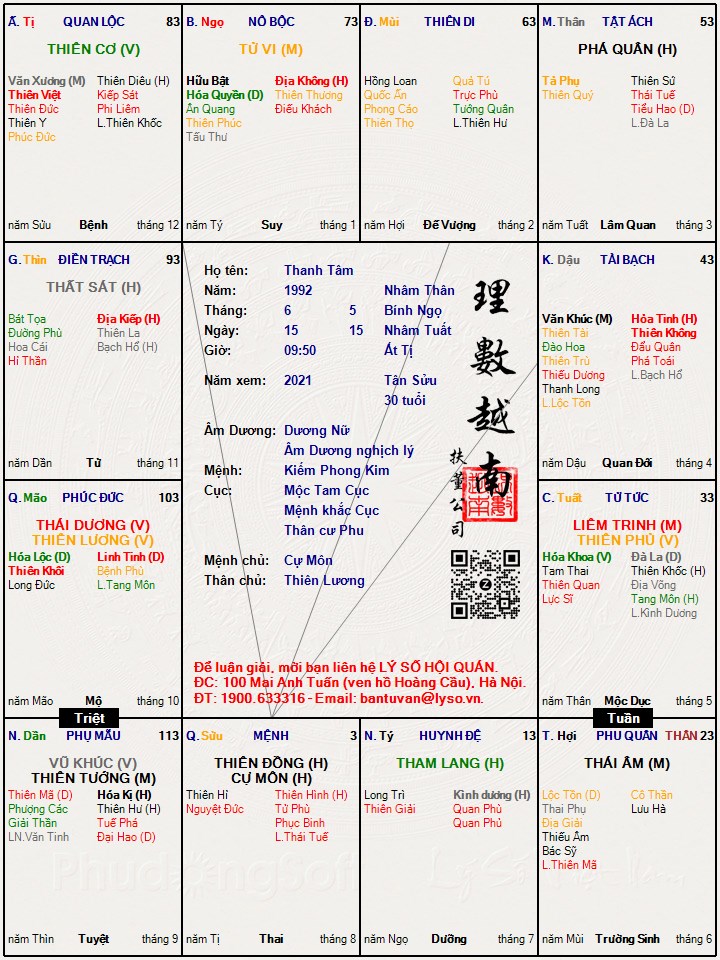 Ấ. Tị QUAN LỘC 83
THIÊN CƠ (V)
Văn Xương (M) Thiên Diêu (H)
Thiên Việt Kiếp Sát
Thiên Đức Phi Liêm
Thiên Y L.Thiên Khốc
Phúc Đức
năm Sửu Bệnh tháng 12
B. Ngọ NÔ BỘC 73
TỬ VI (M)
Hữu Bật Địa Không (H)
Hóa Quyền (D) Thiên Thương
Ân Quang Điếu Khách
Thiên Phúc
Tấu Thư
năm Tý Suy tháng 1
Đ. Mùi THIÊN DI 63
Hồng Loan Quả Tú
Quốc Ấn Trực Phù
Phong Cáo Tướng Quân
Thiên Thọ L.Thiên Hư
năm Hợi Đế Vượng tháng 2
M. Thân TẬT ÁCH 53
PHÁ QUÂN (H)
Tả Phụ Thiên Sứ
Thiên Quý Thái Tuế
Tiểu Hao (D)
L.Đà La
năm Tuất Lâm Quan tháng 3
G. Thìn ĐIỀN TRẠCH 93
THẤT SÁT (H)
Bát Tọa Địa Kiếp (H)
Đường Phù Thiên La
Hoa Cái Bạch Hổ (H)
Hỉ Thần
năm Dần Tử tháng 11
Họ tên: Thanh Tâm
Năm: 1992 Nhâm Thân
Tháng: 6 5 Bính Ngọ
Ngày: 15 15 Nhâm Tuất
Giờ: 09:50 Ất Tị
Năm xem: 2021 Tân Sửu
30 tuổi
Âm Dương: Dương Nữ
Âm Dương nghịch lý
Mệnh: Kiếm Phong Kim
Cục: Mộc Tam Cục
Mệnh khắc Cục
Thân cư Phu
Mệnh chủ: Cự Môn
Thân chủ: Thiên Lương
理數越南
扶董公司
Để luận giải, mời bạn liên hệ LÝ SỐ HỘI QUÁN.
ĐC: 100 Mai Anh Tuấn (ven hồ Hoàng Cầu), Hà Nội.
ĐT: 1900.633316 - Email: bantuvan@lyso.vn.
K. Dậu TÀI BẠCH 43
Văn Khúc (M) Hỏa Tinh (H)
Thiên Tài Thiên Không
Đào Hoa Đẩu Quân
Thiên Trù Phá Toái
Thiếu Dương L.Bạch Hổ
Thanh Long
L.Lộc Tồn
năm Dậu Quan Đới tháng 4
Q. Mão PHÚC ĐỨC 103
THÁI DƯƠNG (V)
THIÊN LƯƠNG (V)
Hóa Lộc (D) Linh Tinh (D)
Thiên Khôi Bệnh Phù
Long Đức L.Tang Môn
năm Mão Mộ tháng 10
C. Tuất TỬ TỨC 33
LIÊM TRINH (M)
THIÊN PHỦ (V)
Hóa Khoa (V) Đà La (D)
Tam Thai Thiên Khốc (H)
Thiên Quan Địa Võng
Lực Sĩ Tang Môn (H)
L.Kình Dương
năm Thân Mộc Dục tháng 5
Triệt
Tuần
N. Dần PHỤ MẪU 113
VŨ KHÚC (V)
THIÊN TƯỚNG (M)
Thiên Mã (D) Hóa Kị (H)
Phượng Các Thiên Hư (H)
Giải Thần Tuế Phá
LN.Văn Tinh Đại Hao (D)
năm Thìn Tuyệt tháng 9
Q. Sửu MỆNH 3
THIÊN ĐỒNG (H)
CỰ MÔN (H)
Thiên Hỉ Thiên Hình (H)
Nguyệt Đức Tử Phù
Phục Binh
L.Thái Tuế
năm Tị Thai tháng 8
N. Tý HUYNH ĐỆ 13
THAM LANG (H)
Long Trì Kình dương (H)
Thiên Giải Quan Phù
Quan Phủ
năm Ngọ Dưỡng tháng 7
T. Hợi PHU QUÂN THÂN 23
THÁI ÂM (M)
Lộc Tồn (D) Cô Thần
Thai Phụ Lưu Hà
Địa Giải
Thiếu Âm
Bác Sỹ
L.Thiên Mã
năm Mùi Trường Sinh tháng 6